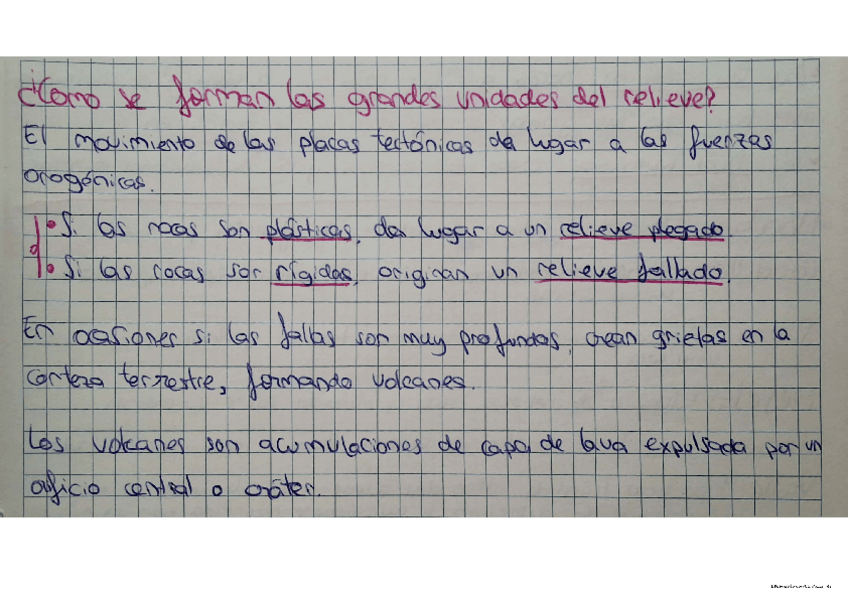 ¿Como se forman las grandes unidades del relieve?
El movimiento de las placas tectónicas da lugar a las fuerzas
orogénicas.
• Si las rocas son plásticas, dan lugar a un relieve plegado.
• Si las rocas son rígidas, originan un relieve fallado.
En ocasiones si las fallas son muy profundas, crean grietas en la
corteza terrestre, formando volcanes.
Los volcanes son acumulaciones de capa de lava expulsada por un
orificio central o cráter.